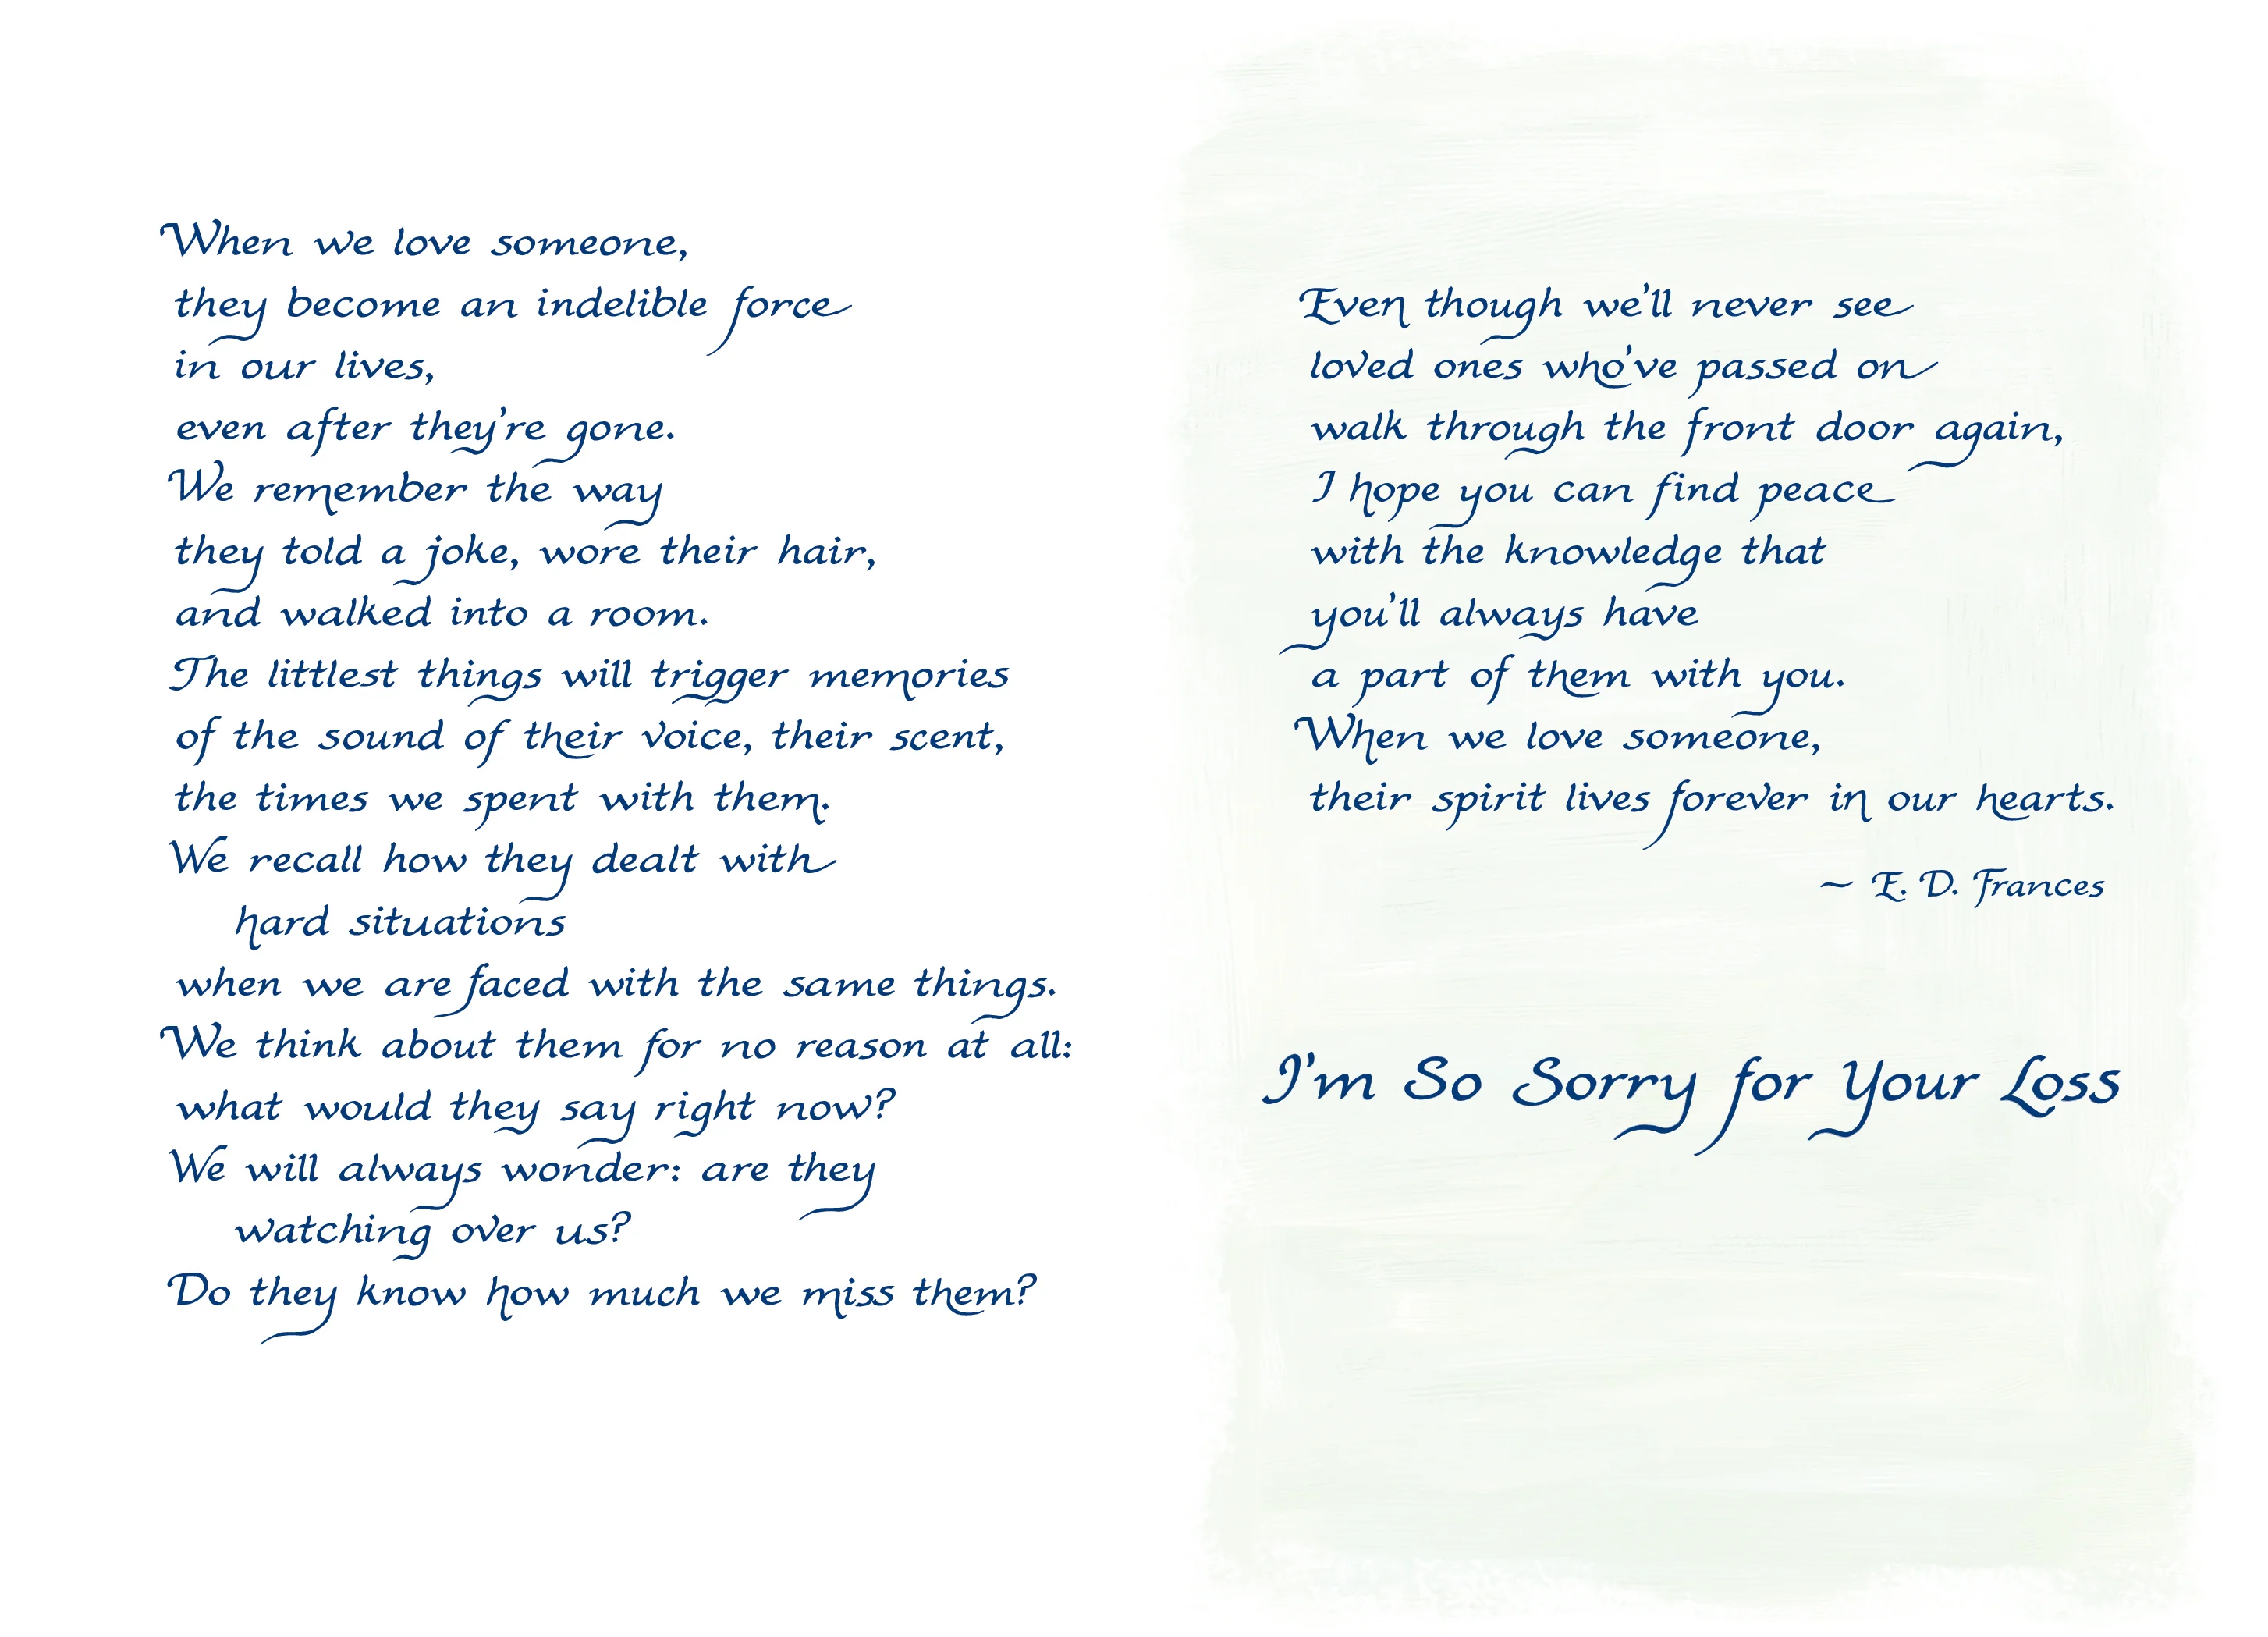 When we love someone,
they become an indelible force
in our lives,
even after they're gone.
We remember the way
they told a joke, wore their hair,
and walked into a room.
The littlest things will trigger memories
of the sound of their voice, their scent,
the times we spent with them.
We recall how they dealt with
hard situations
when we are faced with the same things.
We think about them for no reason at all:
what would they say right now?
We will always wonder: are they
watching over us?
Do they know how much we miss them?
Even though we'll never see
loved ones who've passed on
walk through the front door again,
I hope you can find peace
with the knowledge that
you'll always have
a part of them with you.
When we love someone,
their spirit lives forever in our hearts.
~ E. D. Frances
I'm So Sorry for Your Loss